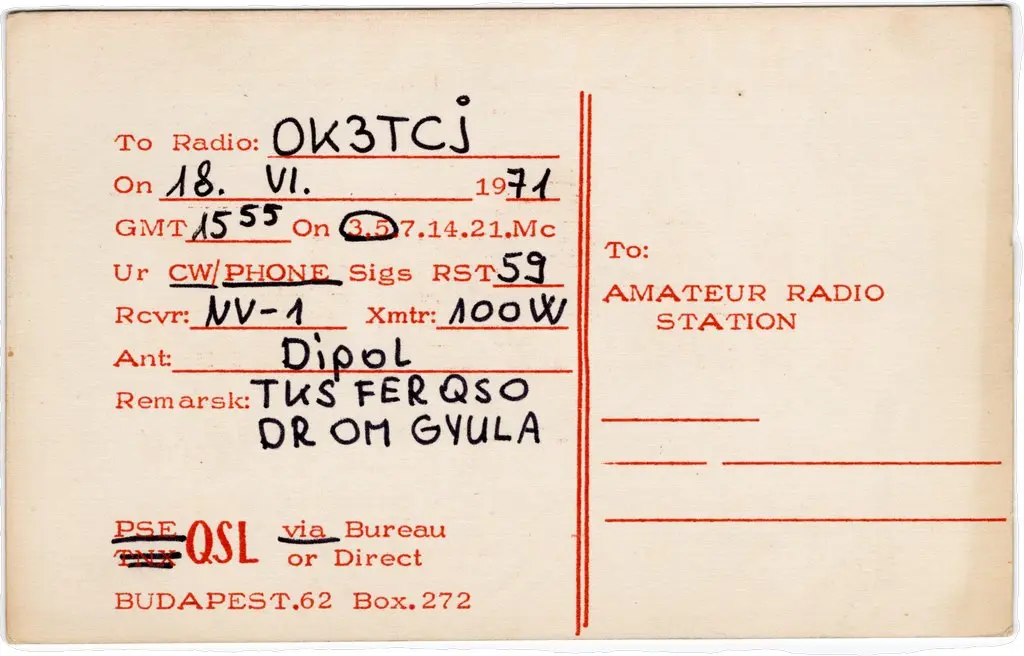 To Radio: OK3TCj
On 18. VI. 1971
GMT 1555 On 3.5.7.14.21.Mc
Ur CW/PHONE Sigs RST 59
Rcvr: NV-1 Xmtr: 100W
Ant: DipoL
Remarsk: TKS FER QSO
DR OM GYULA
PSE QSL via Bureau
TNX or Direct
BUDAPEST.62 Box.272
To:
AMATEUR RADIO
STATION